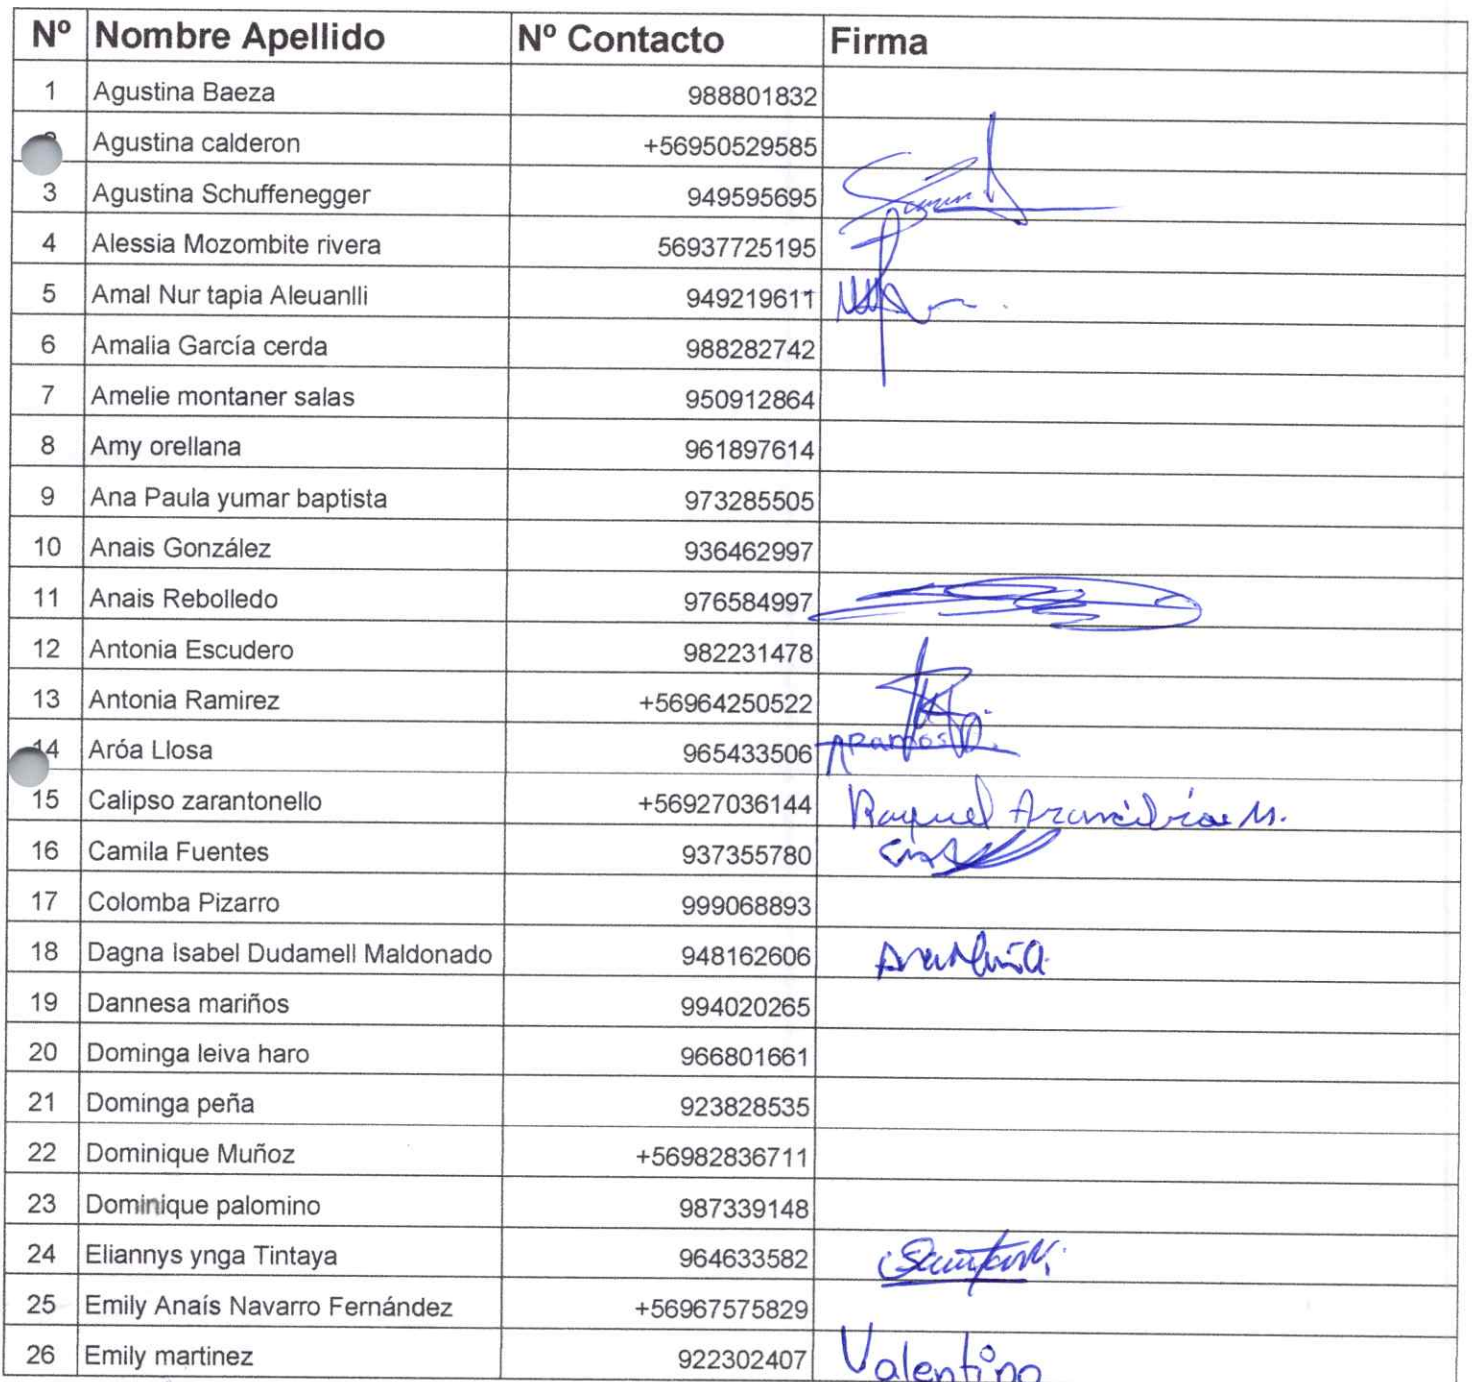 Nº Nombre Apellido Nº Contacto Firma
1 Agustina Baeza 988801832
Agustina calderon +56950529585
3 Agustina Schuffenegger 949595695
4 Alessia Mozombite rivera 56937725195
5 Amal Nur tapia Aleuanlli 949219611
6 Amalia García cerda 988282742
7 Amelie montaner salas 950912864
8 Amy orellana 961897614
9 Ana Paula yumar baptista 973285505
10 Anais González 936462997
11 Anais Rebolledo 976584997
12 Antonia Escudero 982231478
13 Antonia Ramirez +56964250522
14 Aróa Llosa 965433506 ARamos
15 Calipso zarantonello +56927036144 Raquel Arancibia M.
16 Camila Fuentes 937355780
17 Colomba Pizarro 999068893
18 Dagna Isabel Dudamell Maldonado 948162606
19 Dannesa mariños 994020265
20 Dominga leiva haro 966801661
21 Dominga peña 923828535
22 Dominique Muñoz +56982836711
23 Dominique palomino 987339148
24 Eliannys ynga Tintaya 964633582
25 Emily Anaís Navarro Fernández +56967575829
26 Emily martinez 922302407 Valentino